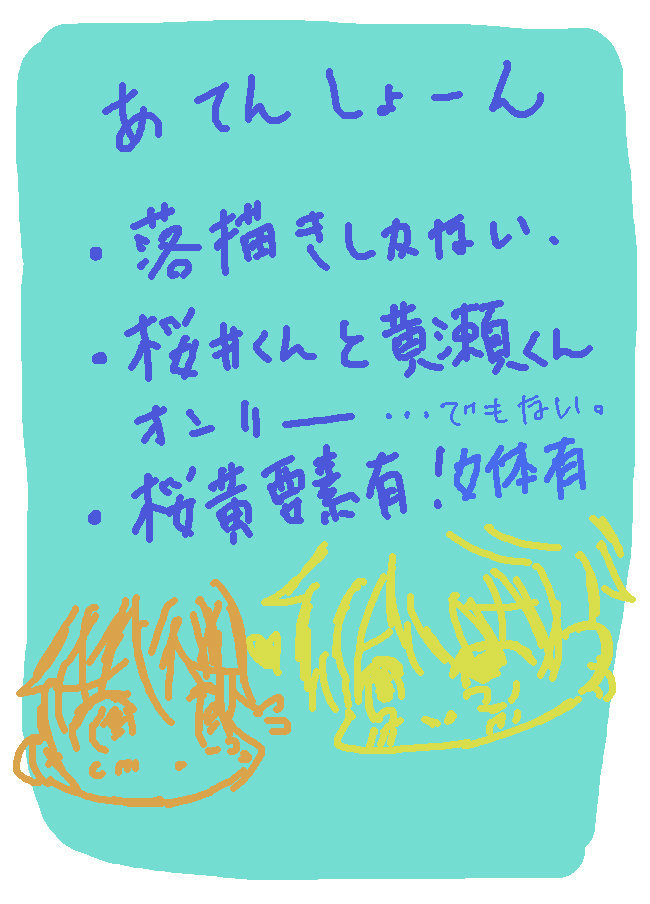 あてんしょーん
・落描きしかない、
・桜井くんと黄瀬くん
オンリー ・・・でもない。
・桜黄要素有！女体有